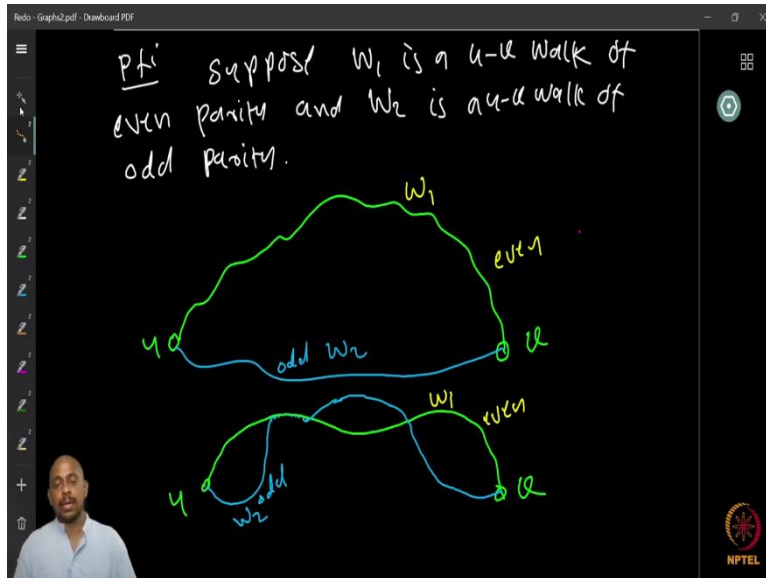 Redo - Graphs2.pdf - Drawboard PDF
Pf: Suppose W1 is a u-v walk of
even parity and W2 is a u-v walk of
odd parity.
W1
even
u
odd W2
v
W1
even
u
W2 odd
v
NPTEL